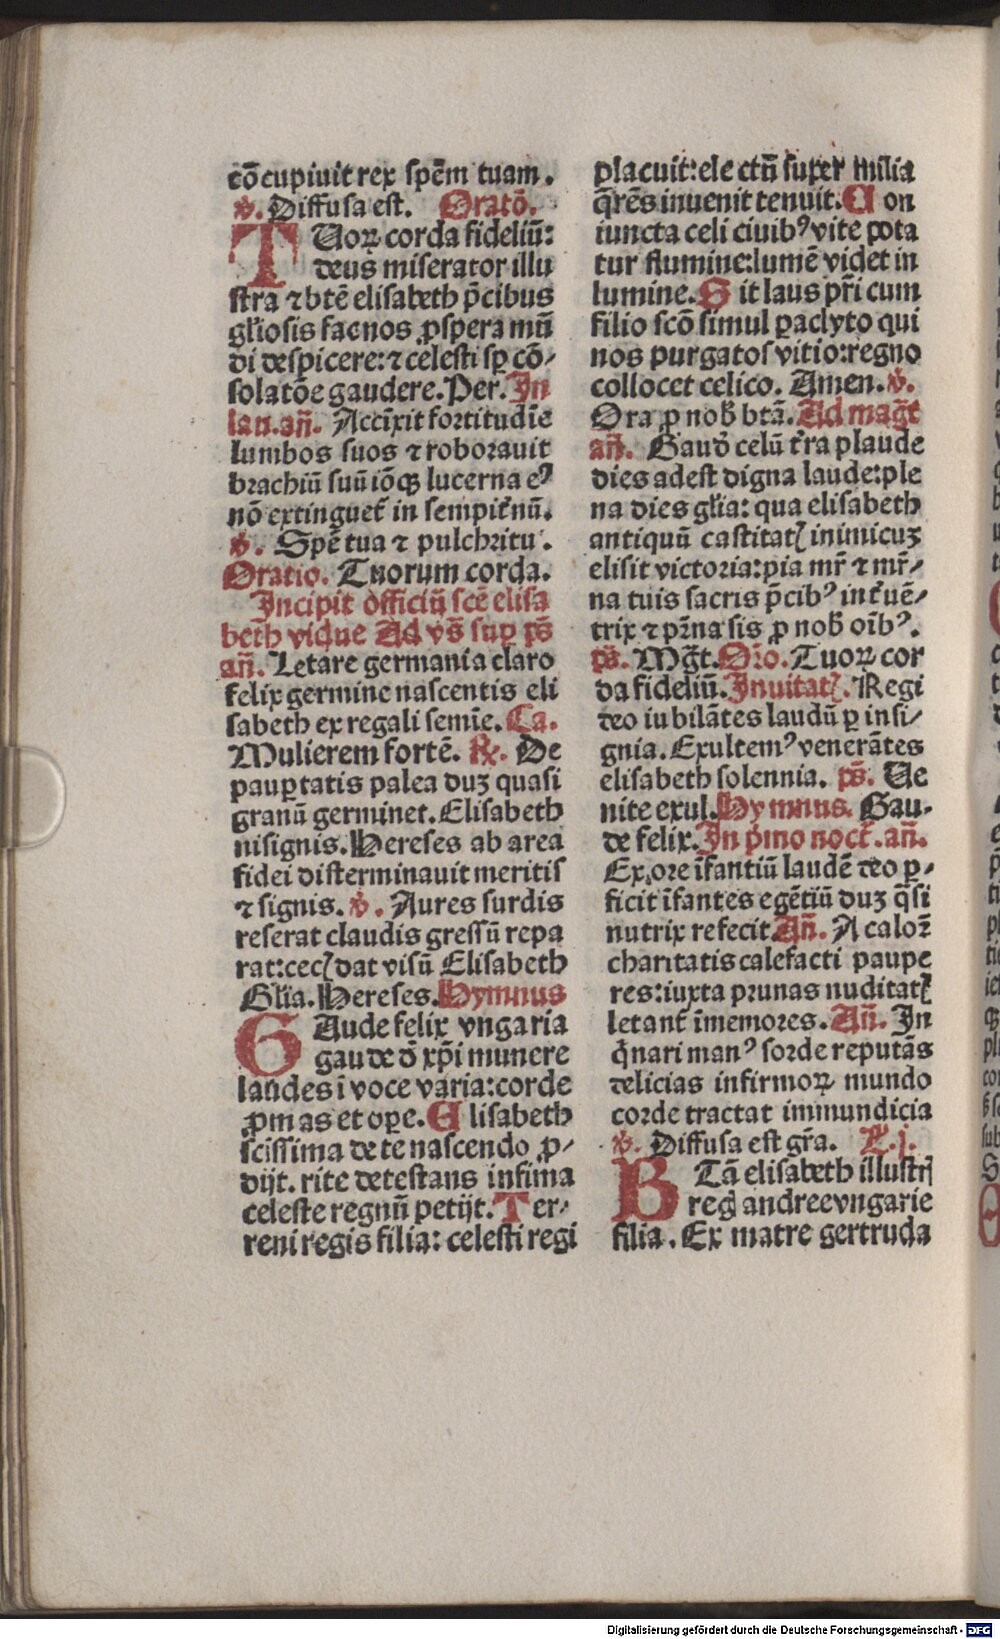 cõcupiuit rex spẽm tuam.
℣. Diffusa est. Oratõ.
TUoꝝ corda fideliũ:
deus miserator illu
stra ⁊ btẽ elisabeth p̃cibus
gl̃iosis fac nos ꝓspera mũ
di despicere: ⁊ celesti sꝑ cõ⸗
solatõe gaudere. Per. In
lau. añ. Accĩxit fortitudĩe
lumbos suos ⁊ roborauit
brachiũ suũ iõqꝫ lucerna eꝰ
nõ extinguet̃ in sempit̃nũ.
℣. Spẽ tua ⁊ pulchritu.
Oratio. Tuorum corda.
Incipit officiũ scẽ elisa
beth vidue Ad vs̃ suꝑ ps̃
añ. Letare germania claro
felix germine nascentis eli
sabeth ex regali semĩe. Ca.
Mulierem fortẽ. ℟. De
pauꝑtatis palea duꝫ quasi
granũ germinet. Elisabeth
nisignis. Hereses ab area
fidei disterminauit meritis
⁊ signis. ℣. Aures surdis
reserat claudis gressũ repa
rat: cecꝭ dat visũ Elisabeth
Gl̃ia. Hereses. Hymnus
GAude felix vngaria
gaude õ xp̃i munere
laudes ĩ voce varia: corde
ꝓmas et oꝑe. Elisabeth
scissima de te nascendo ꝓ⸗
dijt. rite detestans infima
celeste regnũ petijt. Ter⸗
reni regis filia: celesti regi
placuit: electũ super milia
q̃rẽs inuenit tenuit. Con
iuncta celi ciuibꝰ vite pota
tur flumine: lumẽ videt in
lumine. Sit laus pr̃i cum
filio scõ simul ꝑaclyto qui
nos purgatos vitio: regno
collocet celico. Amen. ℣.
Ora ꝓ nob̃ btã. Ad mag̃t
añ. Gaudẽ celũ t̃ra plaude
dies adest digna laude: ple
na dies gl̃ia: qua elisabeth
antiquũ castitatꝭ inimicuꝫ
elisit victoria: pia mr̃ ⁊ mr̃⸗
na tuis sacris p̃cibꝰ int̃uẽ⸗
trix ⁊ pr̃na sis ꝓ nob̃ oĩbꝰ.
ps̃. Mg̃t. Orõ. Tuoꝝ cor
da fideliũ. Inuitatꝭ. Regi
deo iubilãtes laudũ ꝑ insi⸗
gnia. Exultemꝰ venerãtes
elisabeth solennia. ps̃. Ue
nite exul. Hymnus. Gau⸗
de felix. In p̃mo noct̃. añ.
Ex ore ĩfantiũ laudẽ deo ꝑ⸗
ficit ĩfantes egẽtiũ duꝫ q̃si
nutrix refecit Añ. A calor̃
charitatis calefacti paupe
res: iuxta prunas nuditatꝭ
letant̃ ĩmemores. Añ. In
q̃nari manꝰ sorde reputãs
delicias infirmoꝝ mundo
corde tractat immundicia
℣. Diffusa est gr̃a. L̃. j.
BTã elisabeth illustrꝭ
regꝭ andree vngarie
filia. Ex matre gertruda
Digitalisierung gefördert durch die Deutsche Forschungsgemeinschaft - DFG